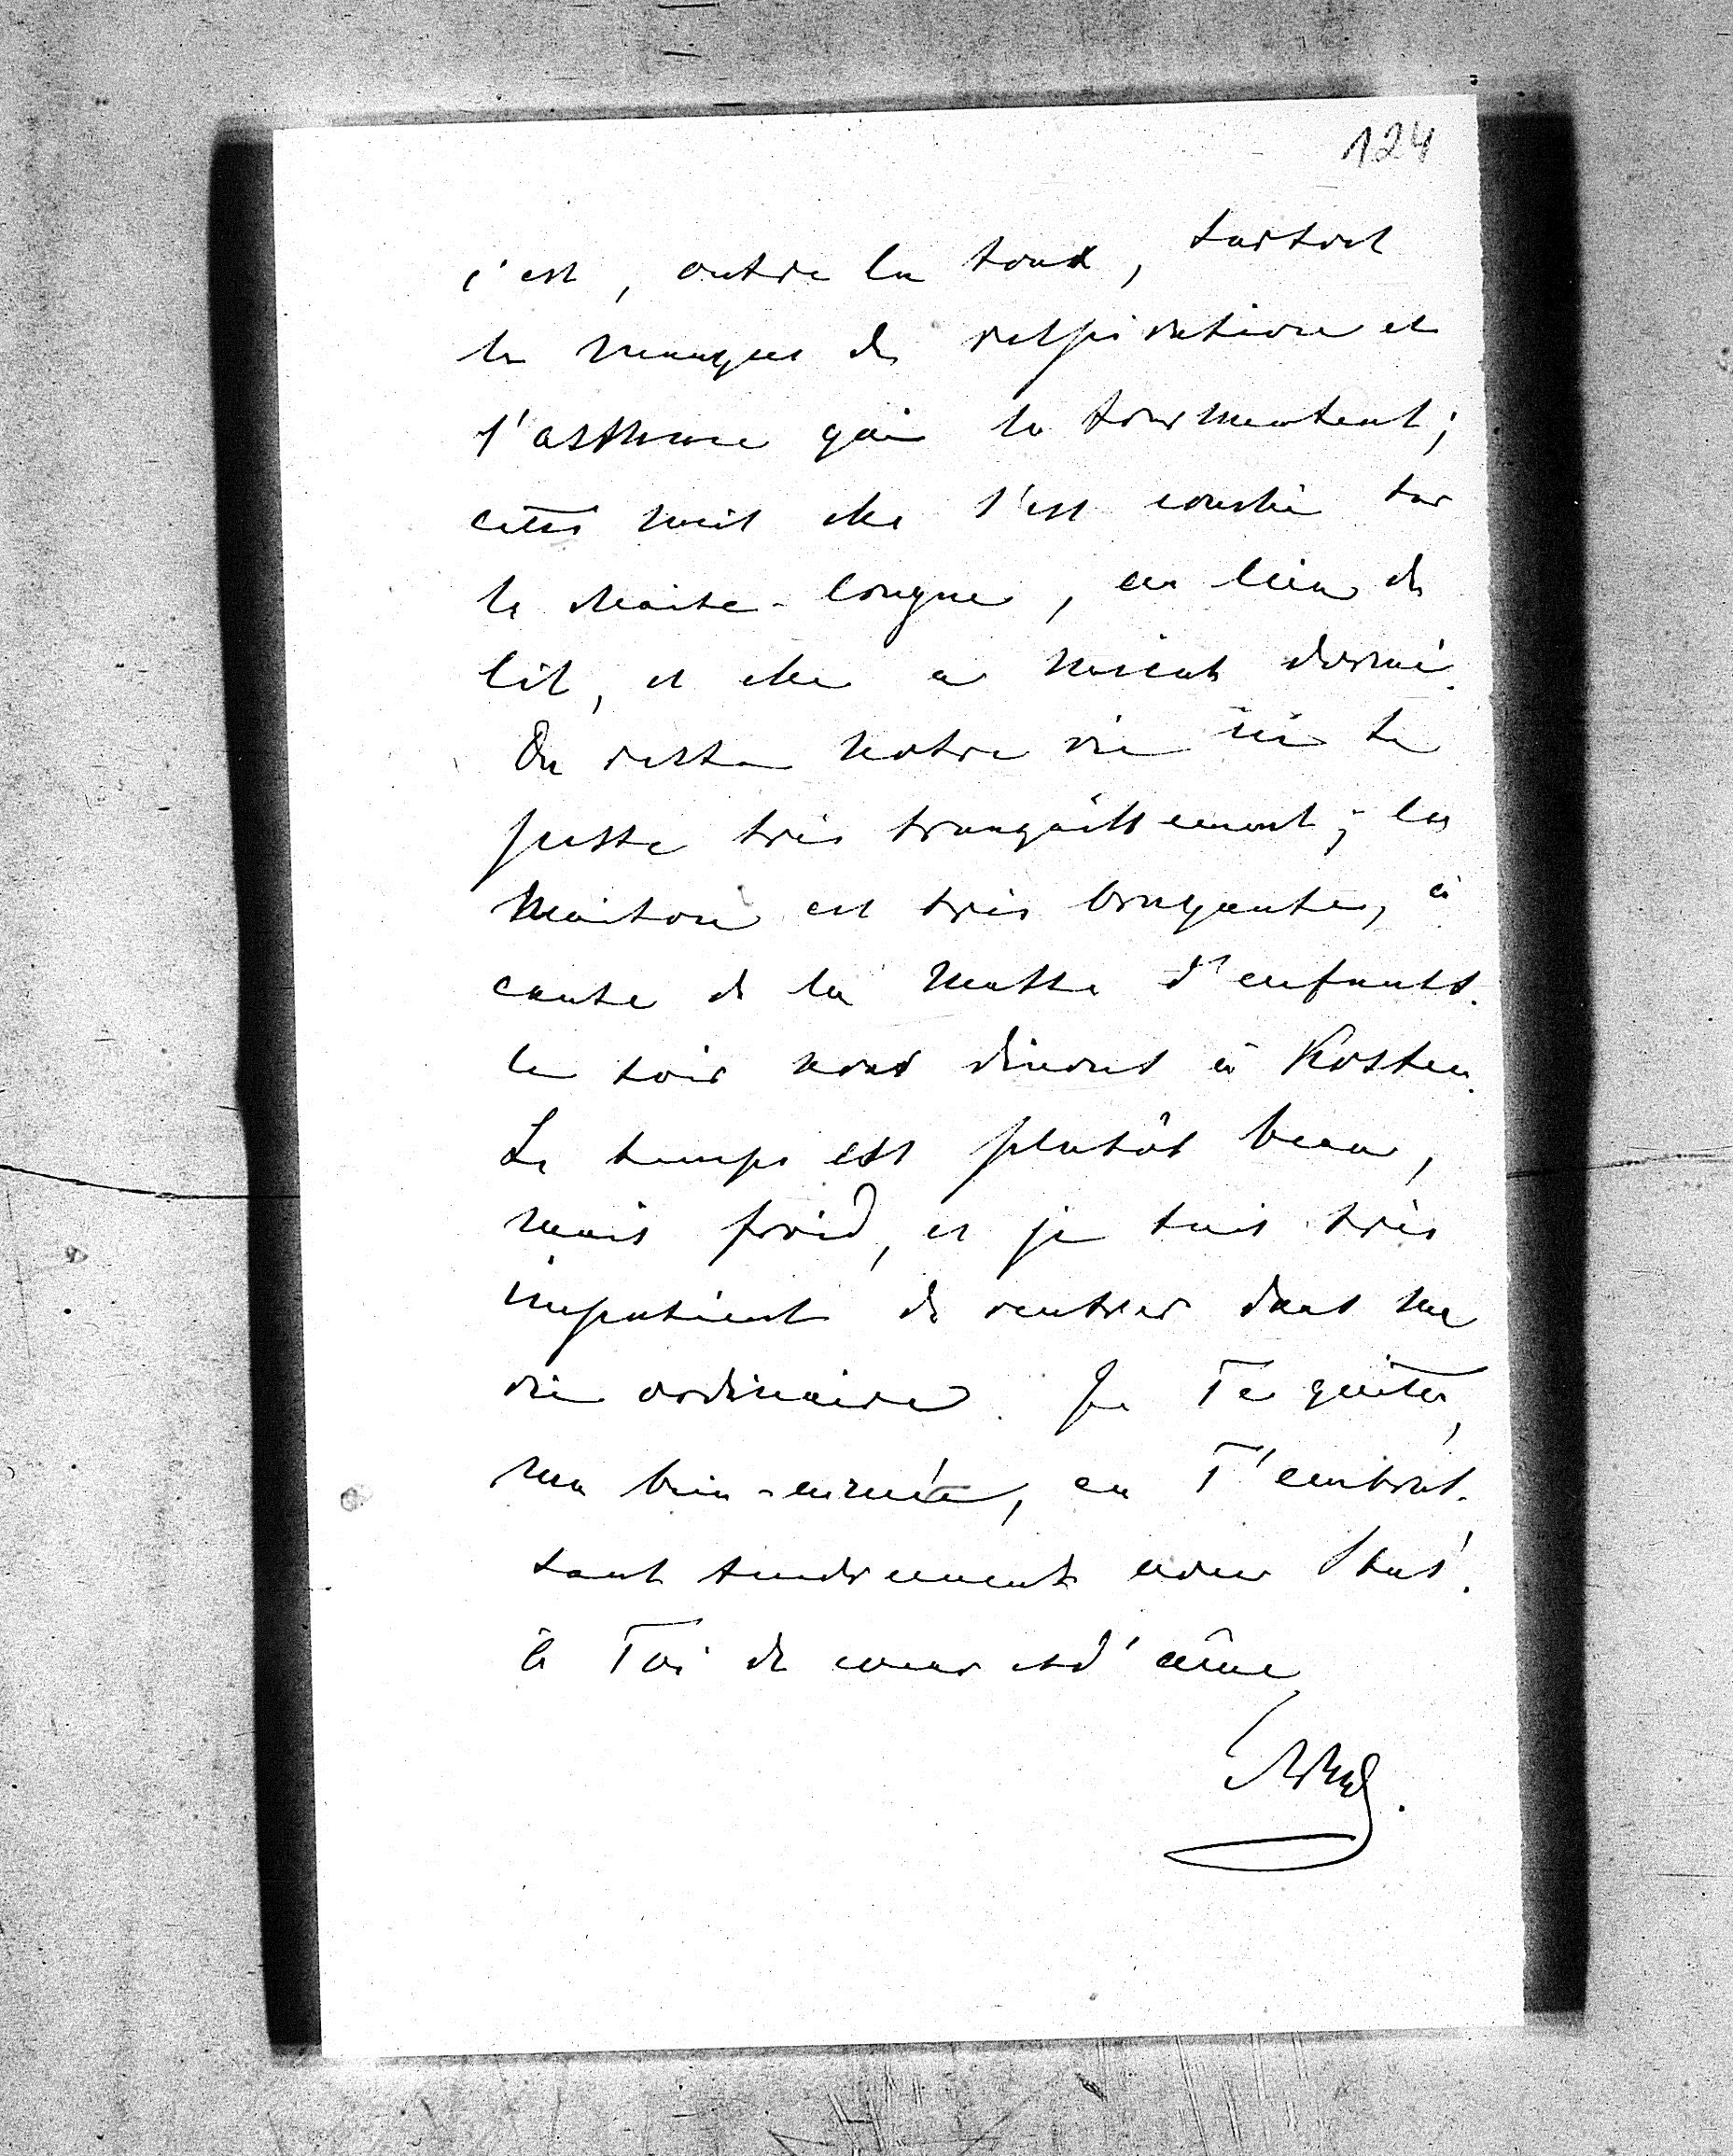 124
c'est, outre la toux, surtout
le manque de respiration et
l'asthme qui la tourmentent;
cette nuit elle s'est couchée sur
la chaise-longue, au lieu du
lit, et elle a mieux dormi.
Du reste notre vie ici se
passe très tranquillement; la
maison est très bruyante, à
cause de la masse d'enfants.
le soir nous dinons à Kosten.
Le temps est plutôt beau,
mais froid, et je suis très
impatient de rentrer dans ma
vie ordinaire. Je Te quitte,
ma bien-aimée, en T'embras-
sant tendrement avec
à Toi de coeur et d'âme